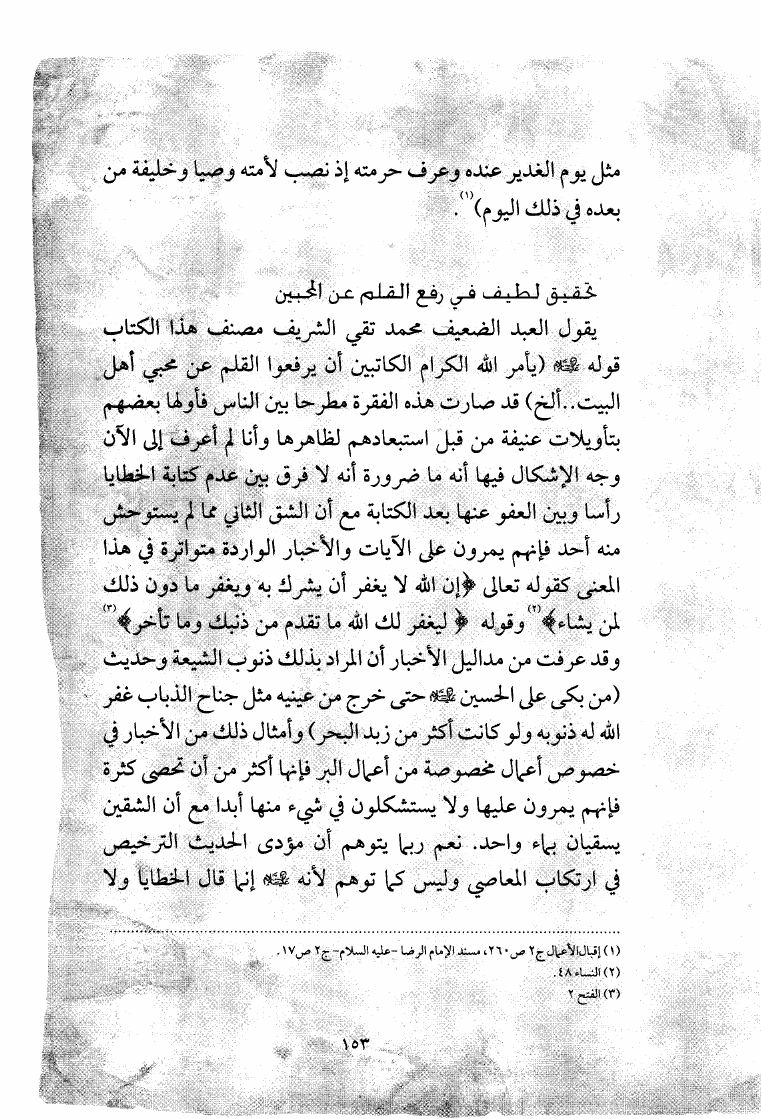 مثل يوم الغدير عنده وعرف حرمته إذ نصب لأمته وصيا وخليفة من
بعده في ذلك اليوم)(١).
تحقيق لطيف في رفع القلم عن المحبين
يقول العبد الضعيف محمد تقي الشريف مصنف هذا الكتاب
قوله ﷺ (يأمر الله الكرام الكاتبين أن يرفعوا القلم عن محبي أهل
البيت..ألخ) قد صارت هذه الفقرة مطرحا بين الناس فأولها بعضهم
بتأويلات عنيفة من قبل استبعادهم لظاهرها وأنا لم أعرف إلى الآن
وجه الإشكال فيها أنه ما ضرورة أنه لا فرق بين عدم كتابة الخطايا
رأسا وبين العفو عنها بعد الكتابة مع أن الشق الثاني مما لم يستوحش
منه أحد فإنهم يمرون على الآيات والأخبار الواردة متواترة في هذا
المعنى كقوله تعالى ﴿إن الله لا يغفر أن يشرك به ويغفر ما دون ذلك
لمن يشاء﴾(٢) وقوله ﴿ ليغفر لك الله ما تقدم من ذنبك وما تأخر﴾(٣)
وقد عرفت من مداليل الأخبار أن المراد بذلك ذنوب الشيعة وحديث
(من بكى على الحسين حتى خرج من عينيه مثل جناح الذباب غفر
الله له ذنوبه ولو كانت أكثر من زبد البحر) وأمثال ذلك من الأخبار في
خصوص أعمال مخصوصة من أعمال البر فإنها أكثر من أن تحصى كثرة
فإنهم يمرون عليها ولا يستشكلون في شيء منها أبدا مع أن الشقين
يسقيان بماء واحد. نعم ربما يتوهم أن مؤدى الحديث الترخيص
في ارتكاب المعاصي وليس كما توهم لأنه ﷺ إنما قال الخطايا ولا
(١) إقبال الأعمال ج٢ ص٢٦٠، مسند الإمام الرضا -عليه السلام- ج٢ ص١٧.
(٢) النساء ٤٨.
(٣) الفتح ٢
١٥٣